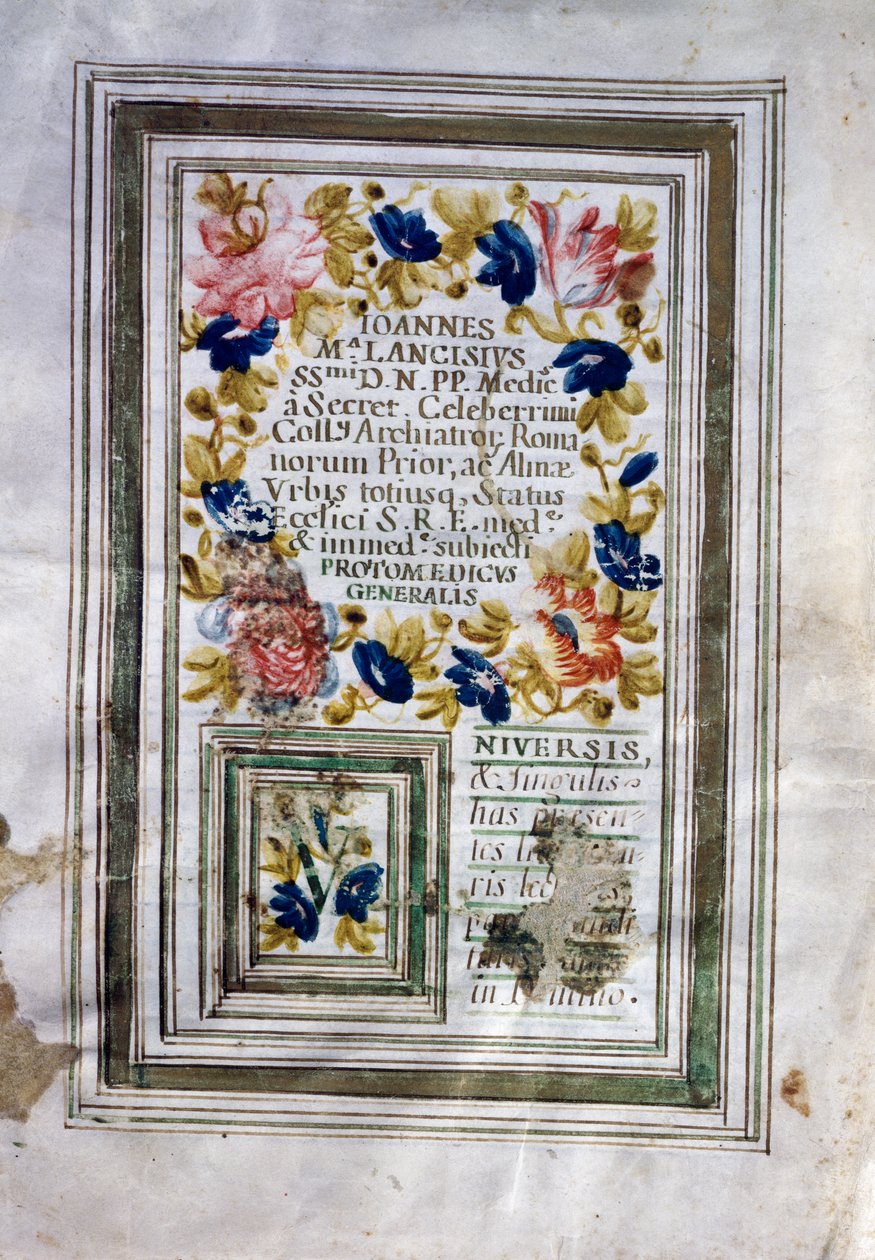 IOANNES
Mᴬ LANCISIVS
SSᵐⁱ D. N. PP. Medic̃
à Secret. Celeberrimi
Collÿ Archiatror, Roma
norum Prior, ac Almæ
Vrbis totiusq, Status
Eccl'ici S. R. E. medᵉ
& immedᵉ subiecti
PROTOMEDICVS
GENERALIS
V
NIVERSIS,
& Singulis
has præsen-
tes
ris
in Domino.